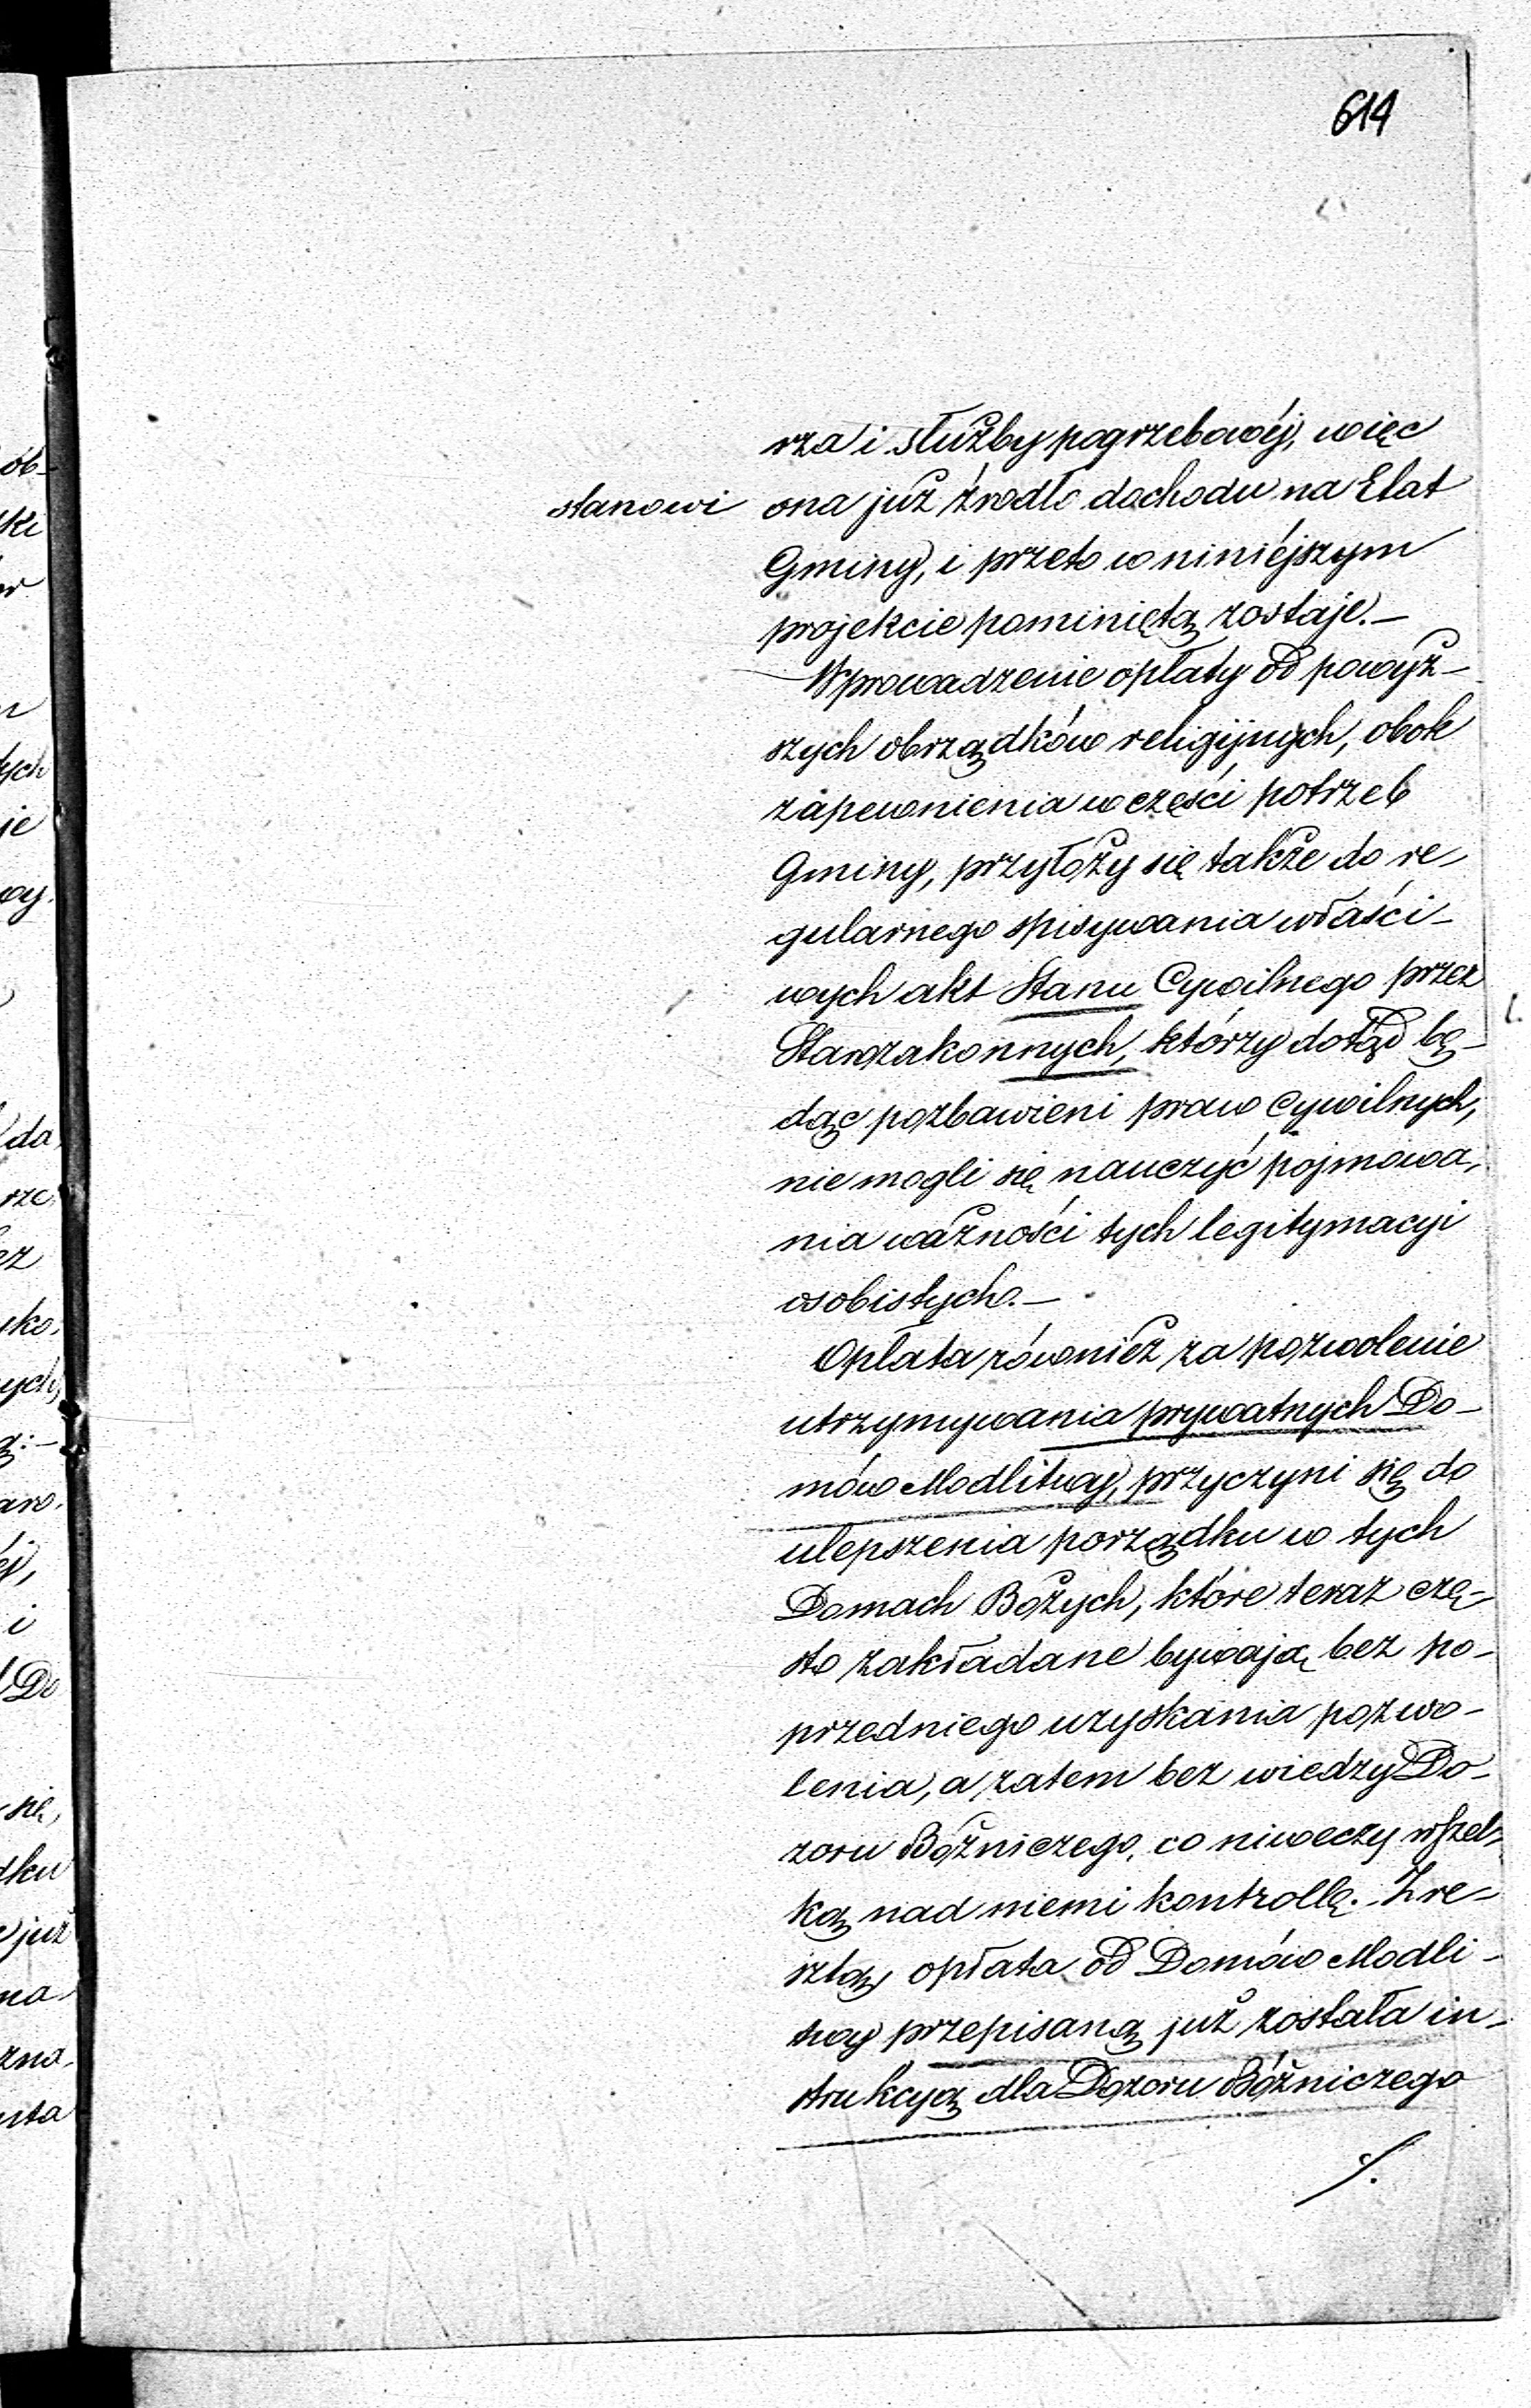 614
rza i służby pogrzebowéj, więc
stanowi ona już źrodło dochodu na Etat
Gminy, i przeto w niniéjszym
projekcie pominiętą zostaje.—
Wprowadzenie opłaty od powyż-
szych obrządków religijnych, obok
zapewnienia w części potrzeb
Gminy, przyłoży się także do re-
gularnego spisywania właści-
wych akt Stanu Cywilnego przez
Starozakonnych, którzy dotąd bę-
dąc pozbawieni praw Cywilnych,
nie mogli się nauczyć pojmowa-
nia ważności tych legitymacyi
osobistych.—
Opłata również za pozwolenie
utrzymywania prywatnych Do-
mów Modlitwy, przyczyni się do
ulepszenia porządku w tych
Domach Bożych, które teraz czę-
sto zakładane bywają bez po-
przedniego uzyskania pozwo-
lenia, a zatem bez wiedzy Do-
zoru Bóżniczego, co niweczy wszel-
ką nad niemi kontrollę. Zre-
sztą, opłata od Domów Modli-
twy przepisaną już została in-
strukcyą dla Dozoru Bóżniczego